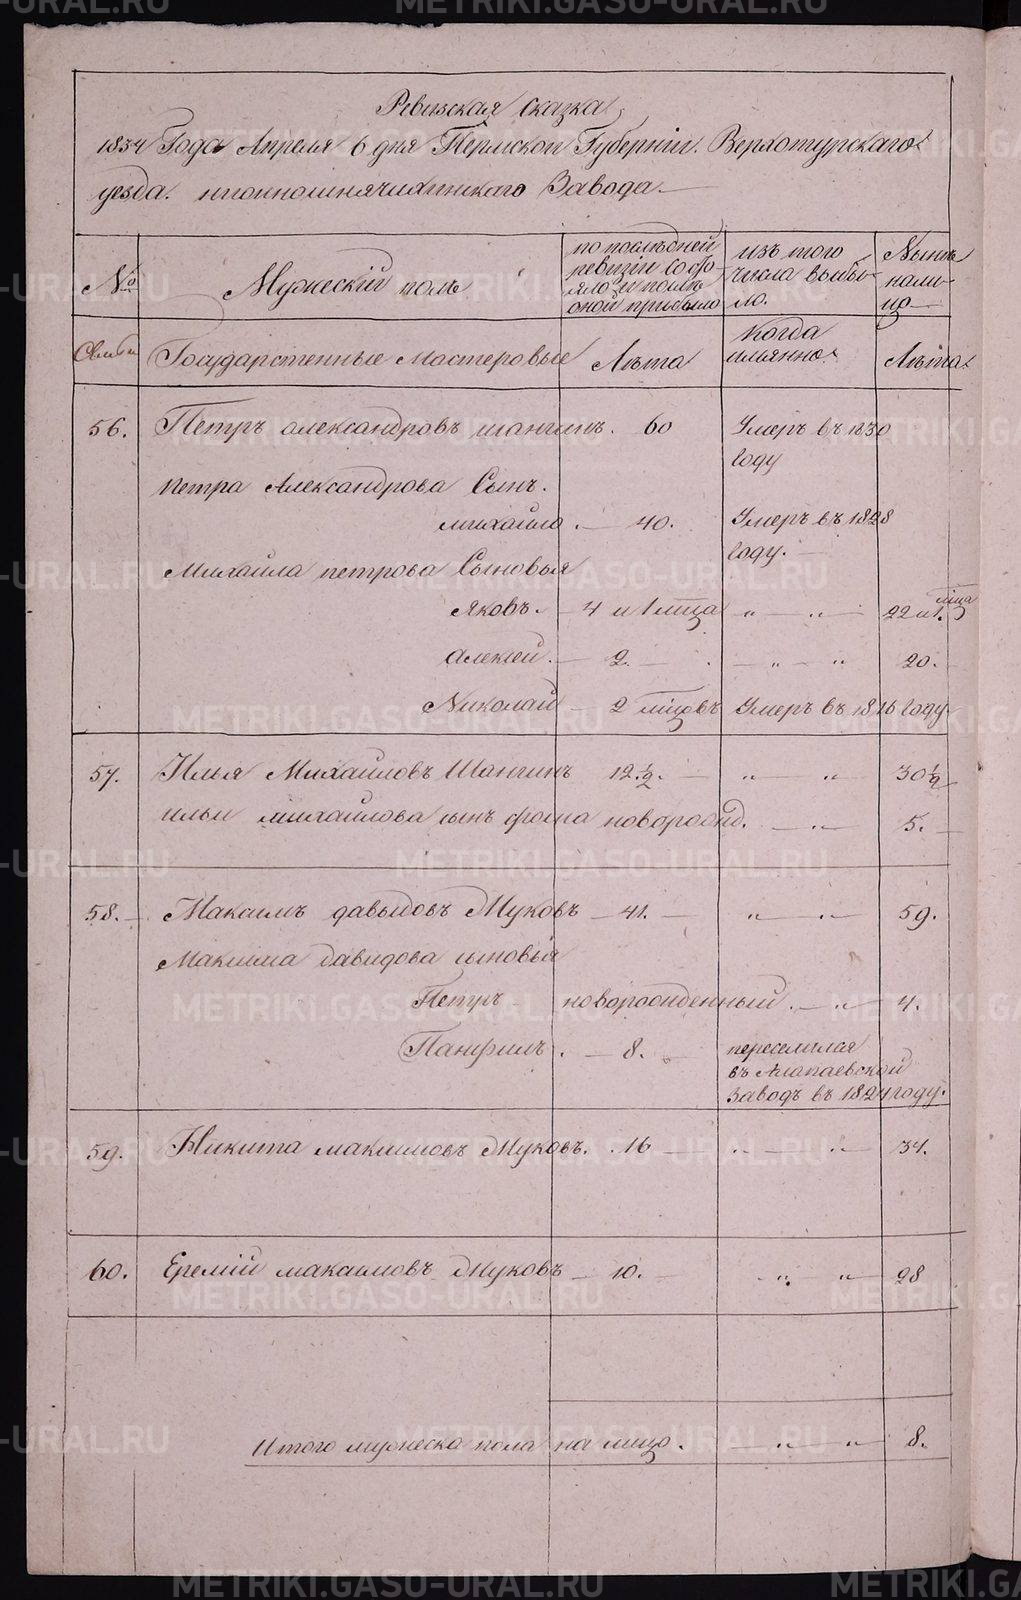 Ревизская сказка
1834 Года Апреля 6 дня Пермской Губернiи. Верхотурскаго
уезда. Завода.
№ Мужескiй полъ по последней ревизiи состояло и после оной прибыло изъ того числа выбыло. Ныне налицо
Семьи Государственные Мастеровые Лѣта Когда имянно Лѣта
56. Петръ александровъ шангинъ. 60 Умеръ въ 1830
году
петра Александрова Сынъ.
михайло. — 40. Умеръ въ 1828
году.
Михайла петрова Сыновья
Яковъ. — 4 и 1 мца „ — „ — 22 и 1. мца
Алексей. — 2. — „ — „ 20.
Николай — 2 мцовъ Умеръ въ 1816 году
57. Илья Михайловъ Шангинъ 12 1/2. — „ „ — 30 1/2
ильи михайлова сынъ фома новорожд. — „ — 5. —
58. — Макаимъ давыдовъ Жуковъ — 41. — „ — „ — 59.
Максима давидова сыновья
Петръ новорожденный. — „ — 4.
Панфилъ. — 8. переселился
въ Алапаевской
Заводъ въ 1824 году.
59. Никита максимовъ Жуковъ. 16 — „ — „ — 34.
60. Еремiй макаимовъ Жуковъ — 10. — „ „ — 28
Итого мужеска пола на лицо. — „ — „ — 8.
METRIKI.GASO-URAL.RU